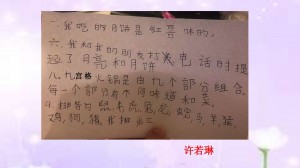 一.我吃的月饼是红枣味的。
六.我和我的朋友打电话时提
到了月亮和月饼
八.九宫格火锅是由九个部分组合。
每一个部分有不同味道和菜。
4.排序号 鼠,牛,虎,兔,龙,蛇,马,羊,猴,
鸡,狗,猪,我排
许若琳